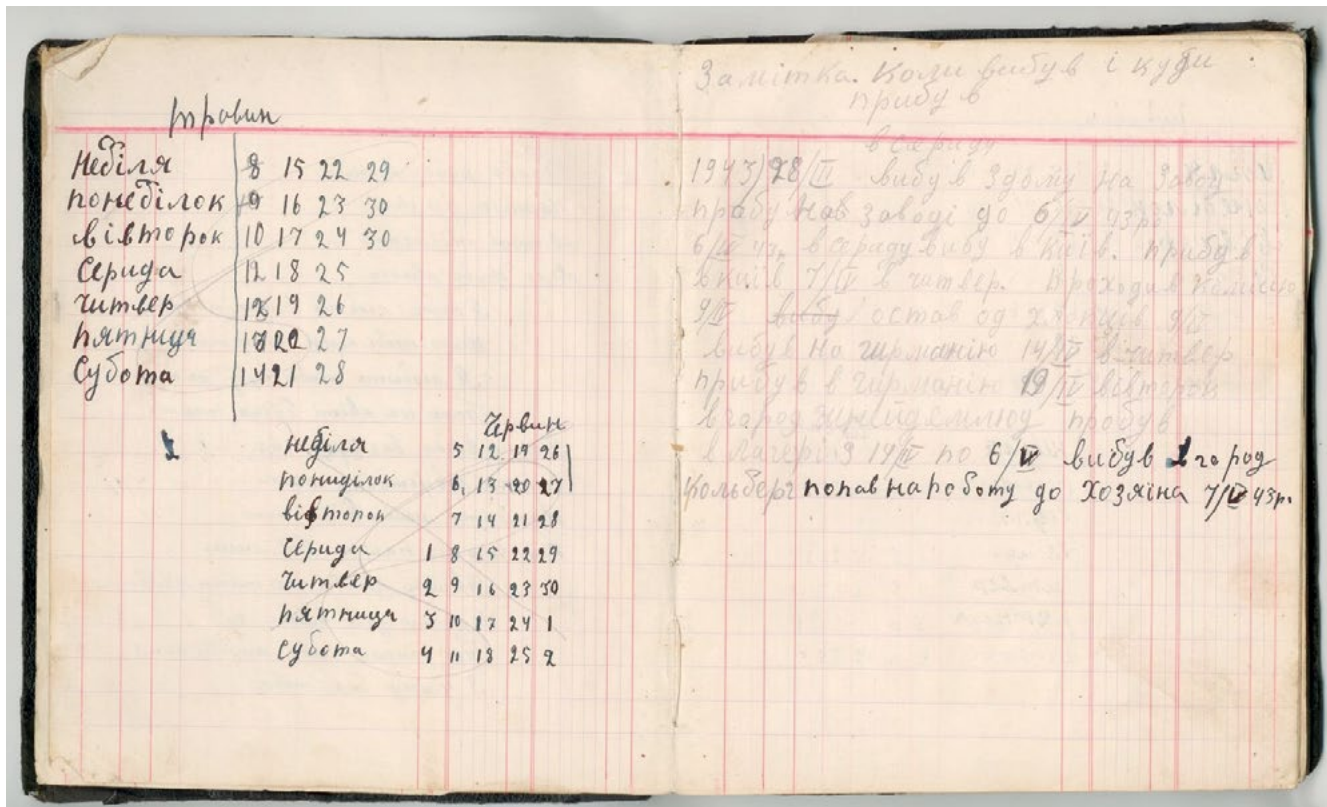 травин
Неділя 8 15 22 29
понеділок 9 16 23 30
вівторок 10 17 24 30
Серида 11 18 25
Читвер 12 19 26
пятниця 13 20 27
Субота 14 21 28
Червин
неділя 5 12 19 26
пониділок 6 13 20 27
вівторок 7 14 21 28
Серида 1 8 15 22 29
Читвер 2 9 16 23 30
пятниця 3 10 17 24 1
субота 4 11 18 25 2
Замітка. Коли вибув і куди
прибув
в сериду
1943) 28/II вибув здому на завод
прабу на заводі до 6/IV 43р.
6/IV 43, в сериду вибу в Київ. прибув
в Київ 7/IV в читвер. Проходив Комісію
9/IV остав од хлопців 9/IV
вибув на гирманію 14/IV в читвер
прибув в гирманію 19/IV вівторок
в город пробув
в лагері З 19/IV по 6/V вибув в город
Кольберг попав на роботу до Хозяїна 7/V 43р.